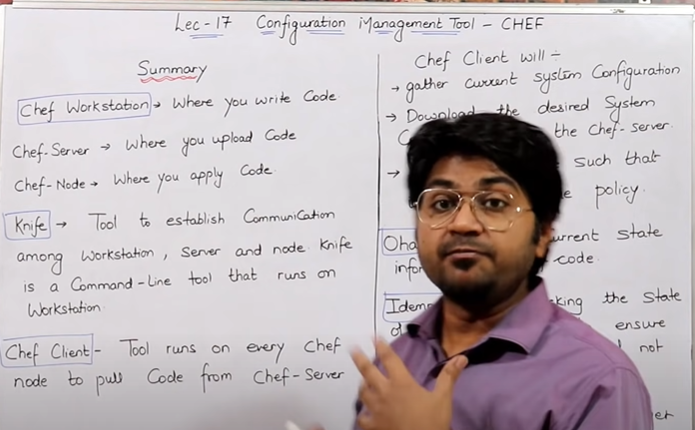 Lec-17 Configuration Management Tool - CHEF
Summary
Chef Workstation → Where you write Code
Chef-Server → Where you upload Code
Chef-Node → Where you apply Code.
Knife → Tool to establish Communication
among Workstation, Server and node. Knife
is a Command-Line tool that runs on
Workstation.
Chef Client - Tool runs on every Chef
node to pull Code from Chef-Server
Chef Client will ÷
→ gather current system Configuration
→ Download the desired System
the Chef-server.
→ such that
policy.
state
code.
the State
ensure
not